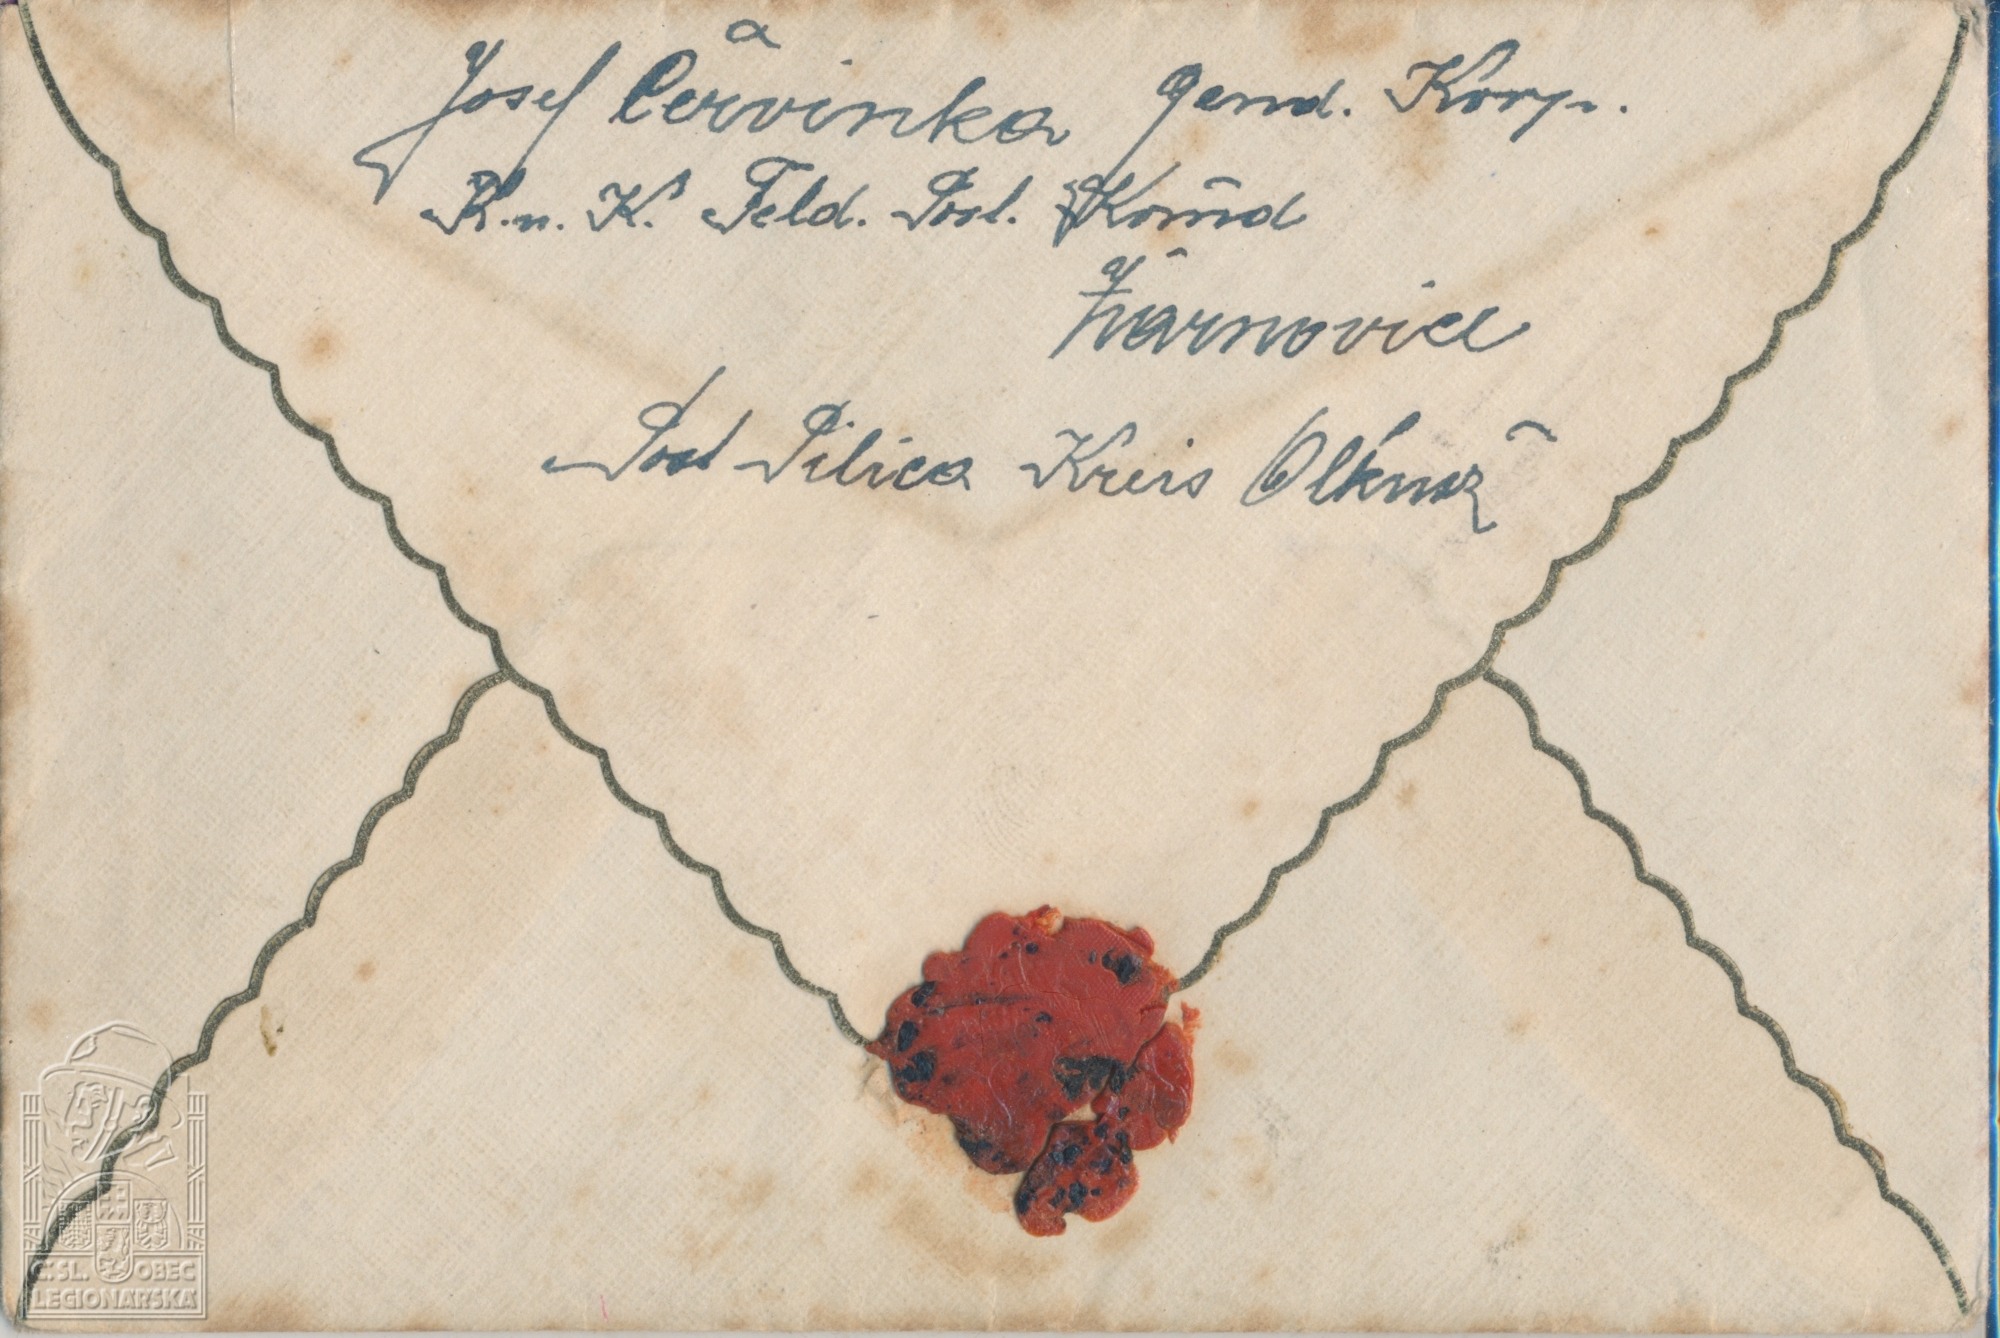 Josef Červinka Gend. Korp.
K. u. K. Feld. Post. Komd
Žarnovice
Post Pilica Kreis Olkusz
Č.SL. OBEC
LEGIONÁŘSKÁ